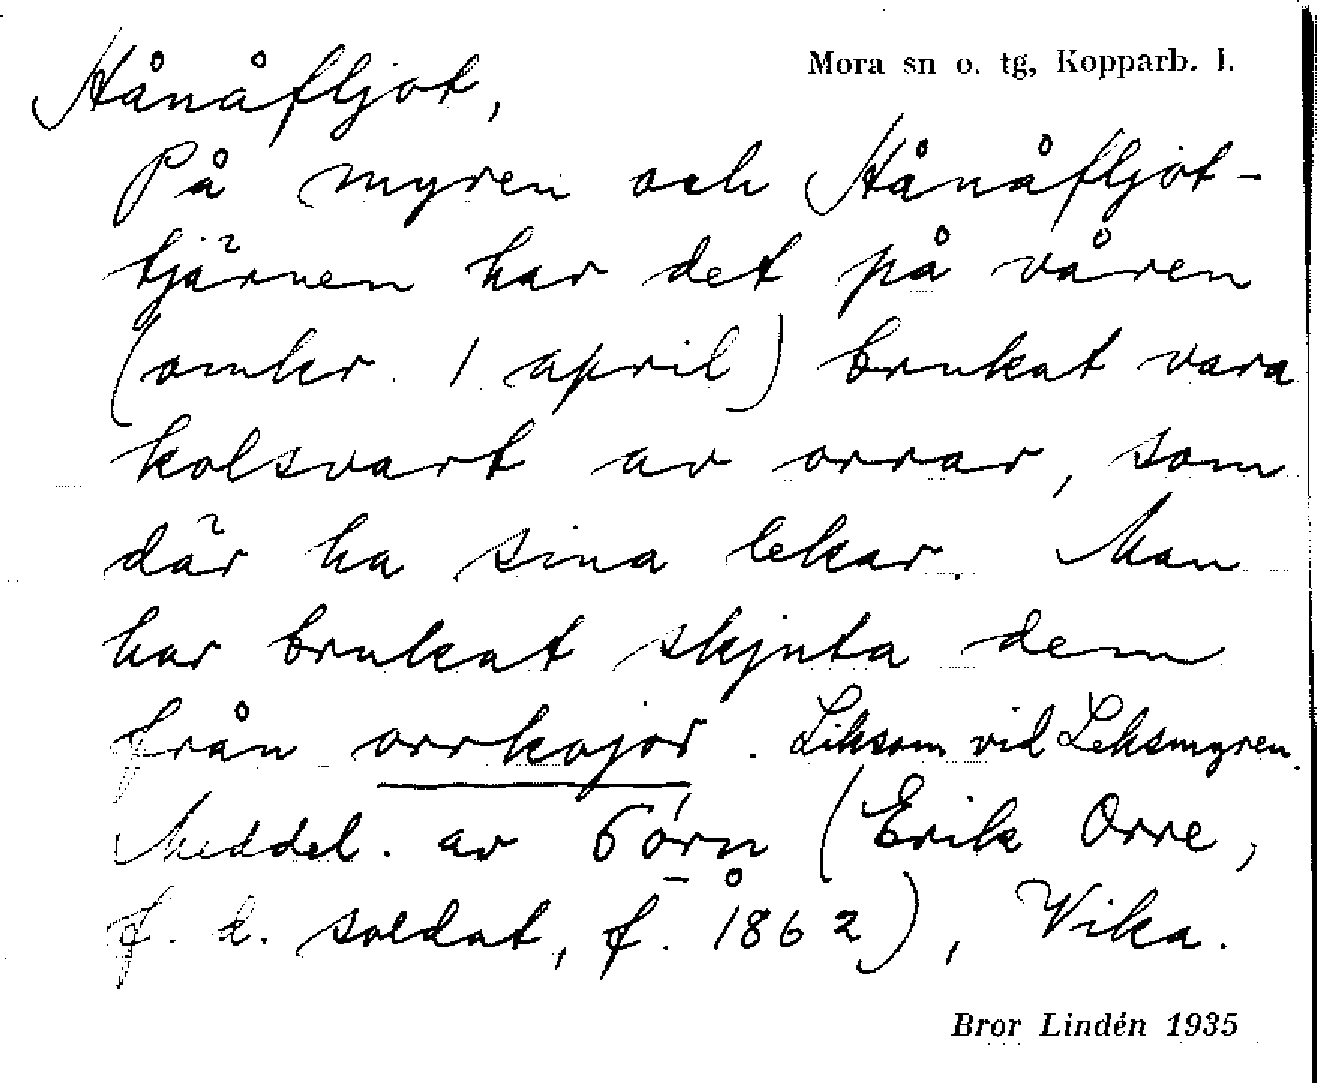 Mora sn o. tg, Kopparb. l.
Hånåfljot,
På myren och Hånåfljot-
tjärnen har det på våren
(omkr. 1 april) brukat vara
kolsvart av orrar, som
där ha sina lekar. Man
har brukat skjuta dem
från orrkojor. Liksom vid Leksmyren.
Meddel. av (Erik Orre,
f. d. soldat, f. 1862), Vika.
Bror Lindén 1935